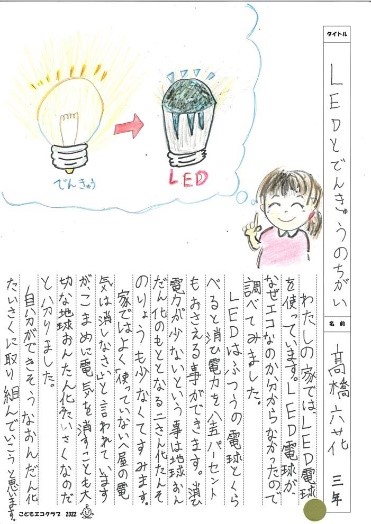 タイトル
LEDとでんきゅうのちがい
名前
髙橋六花
三年
でんきゅう
LED
わたしの家では、LED電球
を使っています。LED電球が、
なぜエコなのか分からなかったので
調べてみました。
LEDはふつうの電球とくら
べると消ひ電力を八五パーセント
もおさえる事ができます。消ひ
電力が少ないという事は地球おん
だん化のもととなる二さん化たんそ
のりょうも少なくてすみます。
家ではよく「使っていないへ屋の電
気は消しなさい」と言われています
が、こまめに電気を消すことも大
切な地球おんだん化たいさくなのだ
と分りました。
自分ができそうなおんだん化
たいさくに取り組んでいこうと思います。
こどもエコクラブ 2022